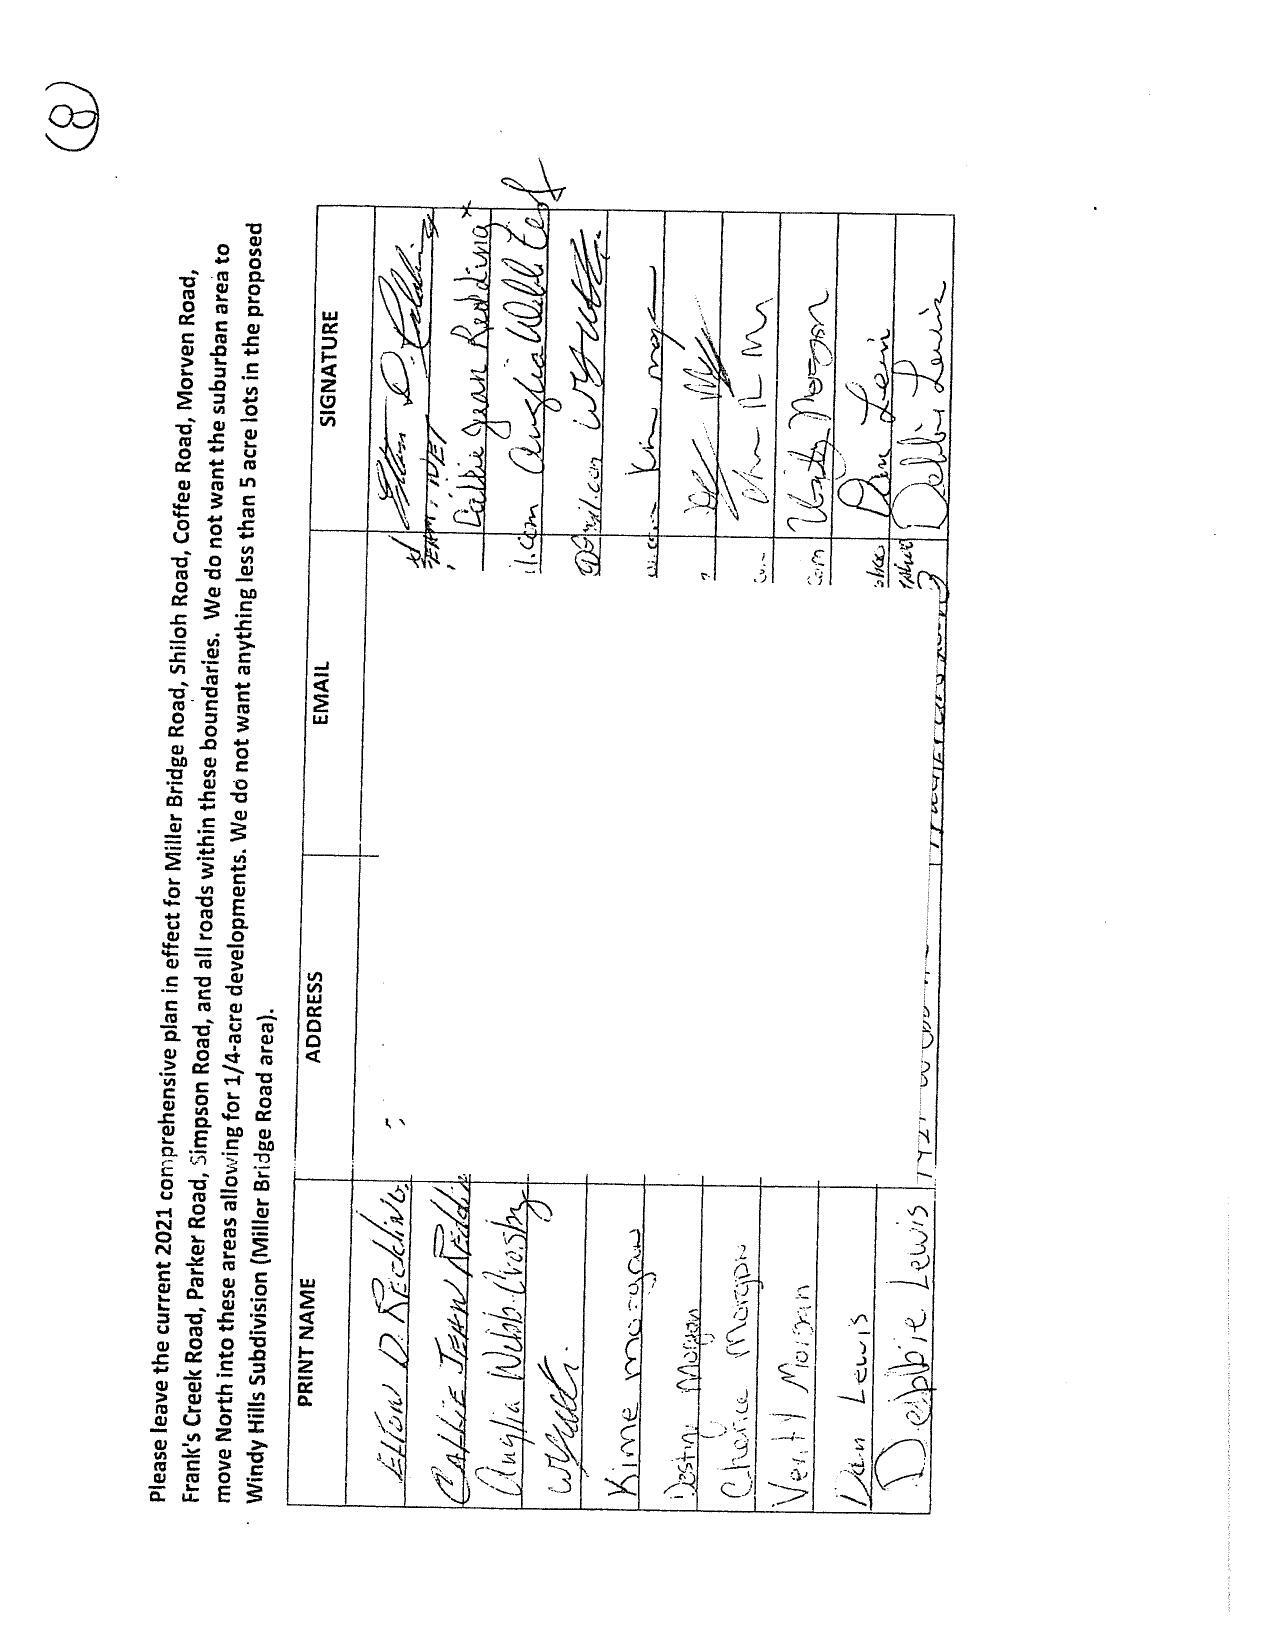 (8)
Please leave the current 2021 comprehensive plan in effect for Miller Bridge Road, Shiloh Road, Coffee Road, Morven Road,
Frank's Creek Road, Parker Road, Simpson Road, and all roads within these boundaries. We do not want the suburban area to
move North into these areas allowing for 1/4-acre developments. We do not want anything less than 5 acre lots in the proposed
Windy Hills Subdivision (Miller Bridge Road area).
PRINT NAME ADDRESS EMAIL SIGNATURE
Elton D. Redding
Callie Jean Reddin Callie Jean Redding
Anglia Webb-Crosby il.com Anglia Webb
@Gmail.com
Kime morgan Kim
Destiny Morgan
Cherice Morgan
Verity Morgan com Verity Morgan
Dan Lewis Dan Lewis
Debbie Lewis Debbie Lewis